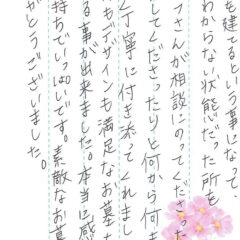 も建てるという事になって、
わからない状態だった所を
フさんが相談にのってくださった
してくださったりと何から何ま
丁寧に付き添ってくれまし
もデザインも満足なお墓
る事が出来ました。本当に感
持ちでいっぱいです。素敵なお墓
がとうございました。